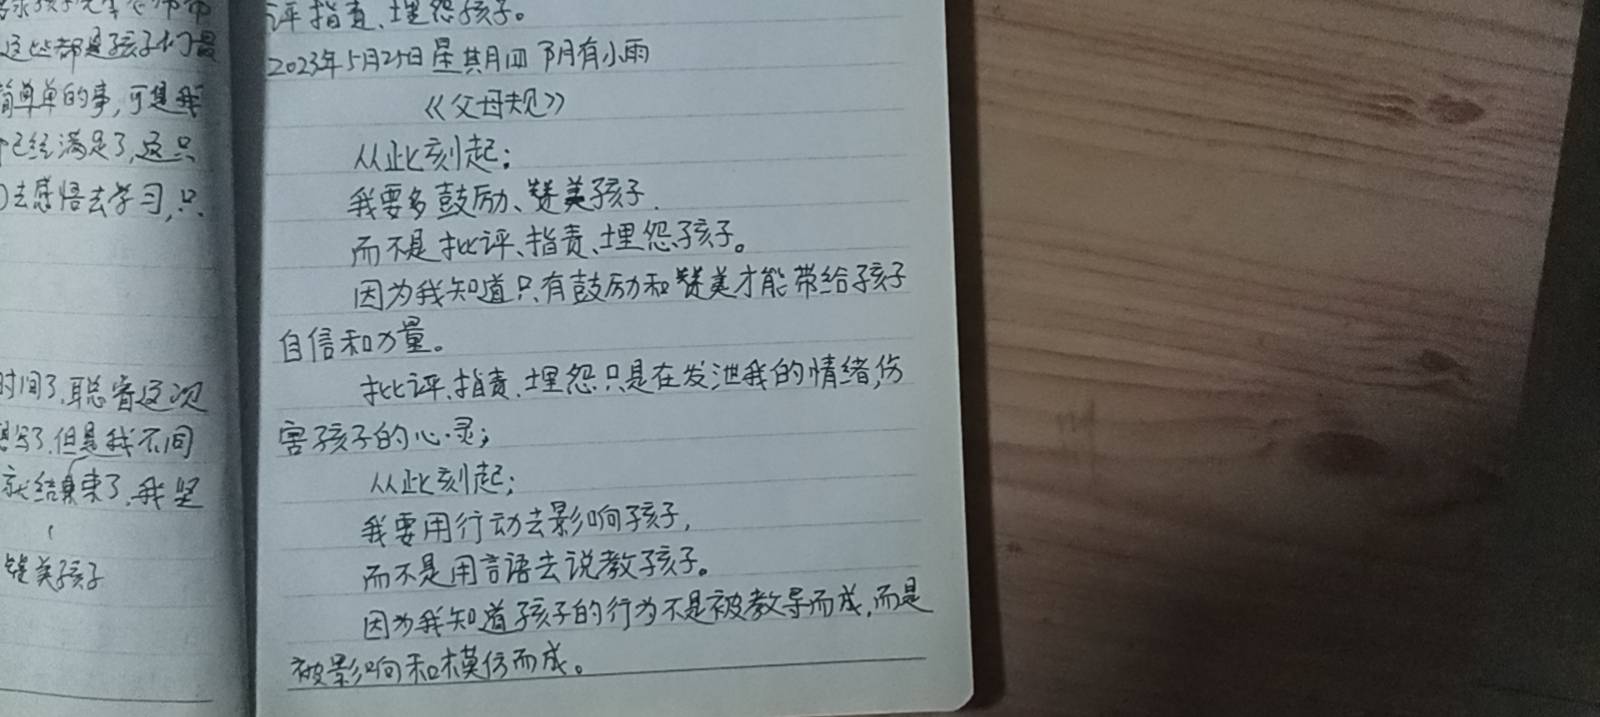 这些都是孩子们最
简单的事,可是我
已经满足了,这只
去感悟去学习,只
时间了,聪睿这次
写了,但是我不间
就结束了,我坚
赞美孩子
评指责、埋怨孩子。
2023年5月25日星期四 阴有小雨
《父母规》
从此刻起:
我要多鼓励、赞美孩子.
而不是批评、指责、埋怨孩子。
因为我知道只有鼓励和赞美才能带给孩子
自信和力量。
批评、指责、埋怨只是在发泄我的情绪,伤
害孩子的心灵;
从此刻起;
我要用行动去影响孩子,
而不是用言语去说教孩子。
因为我知道孩子的行为不是被教导而成,而是
被影响和模仿而成。